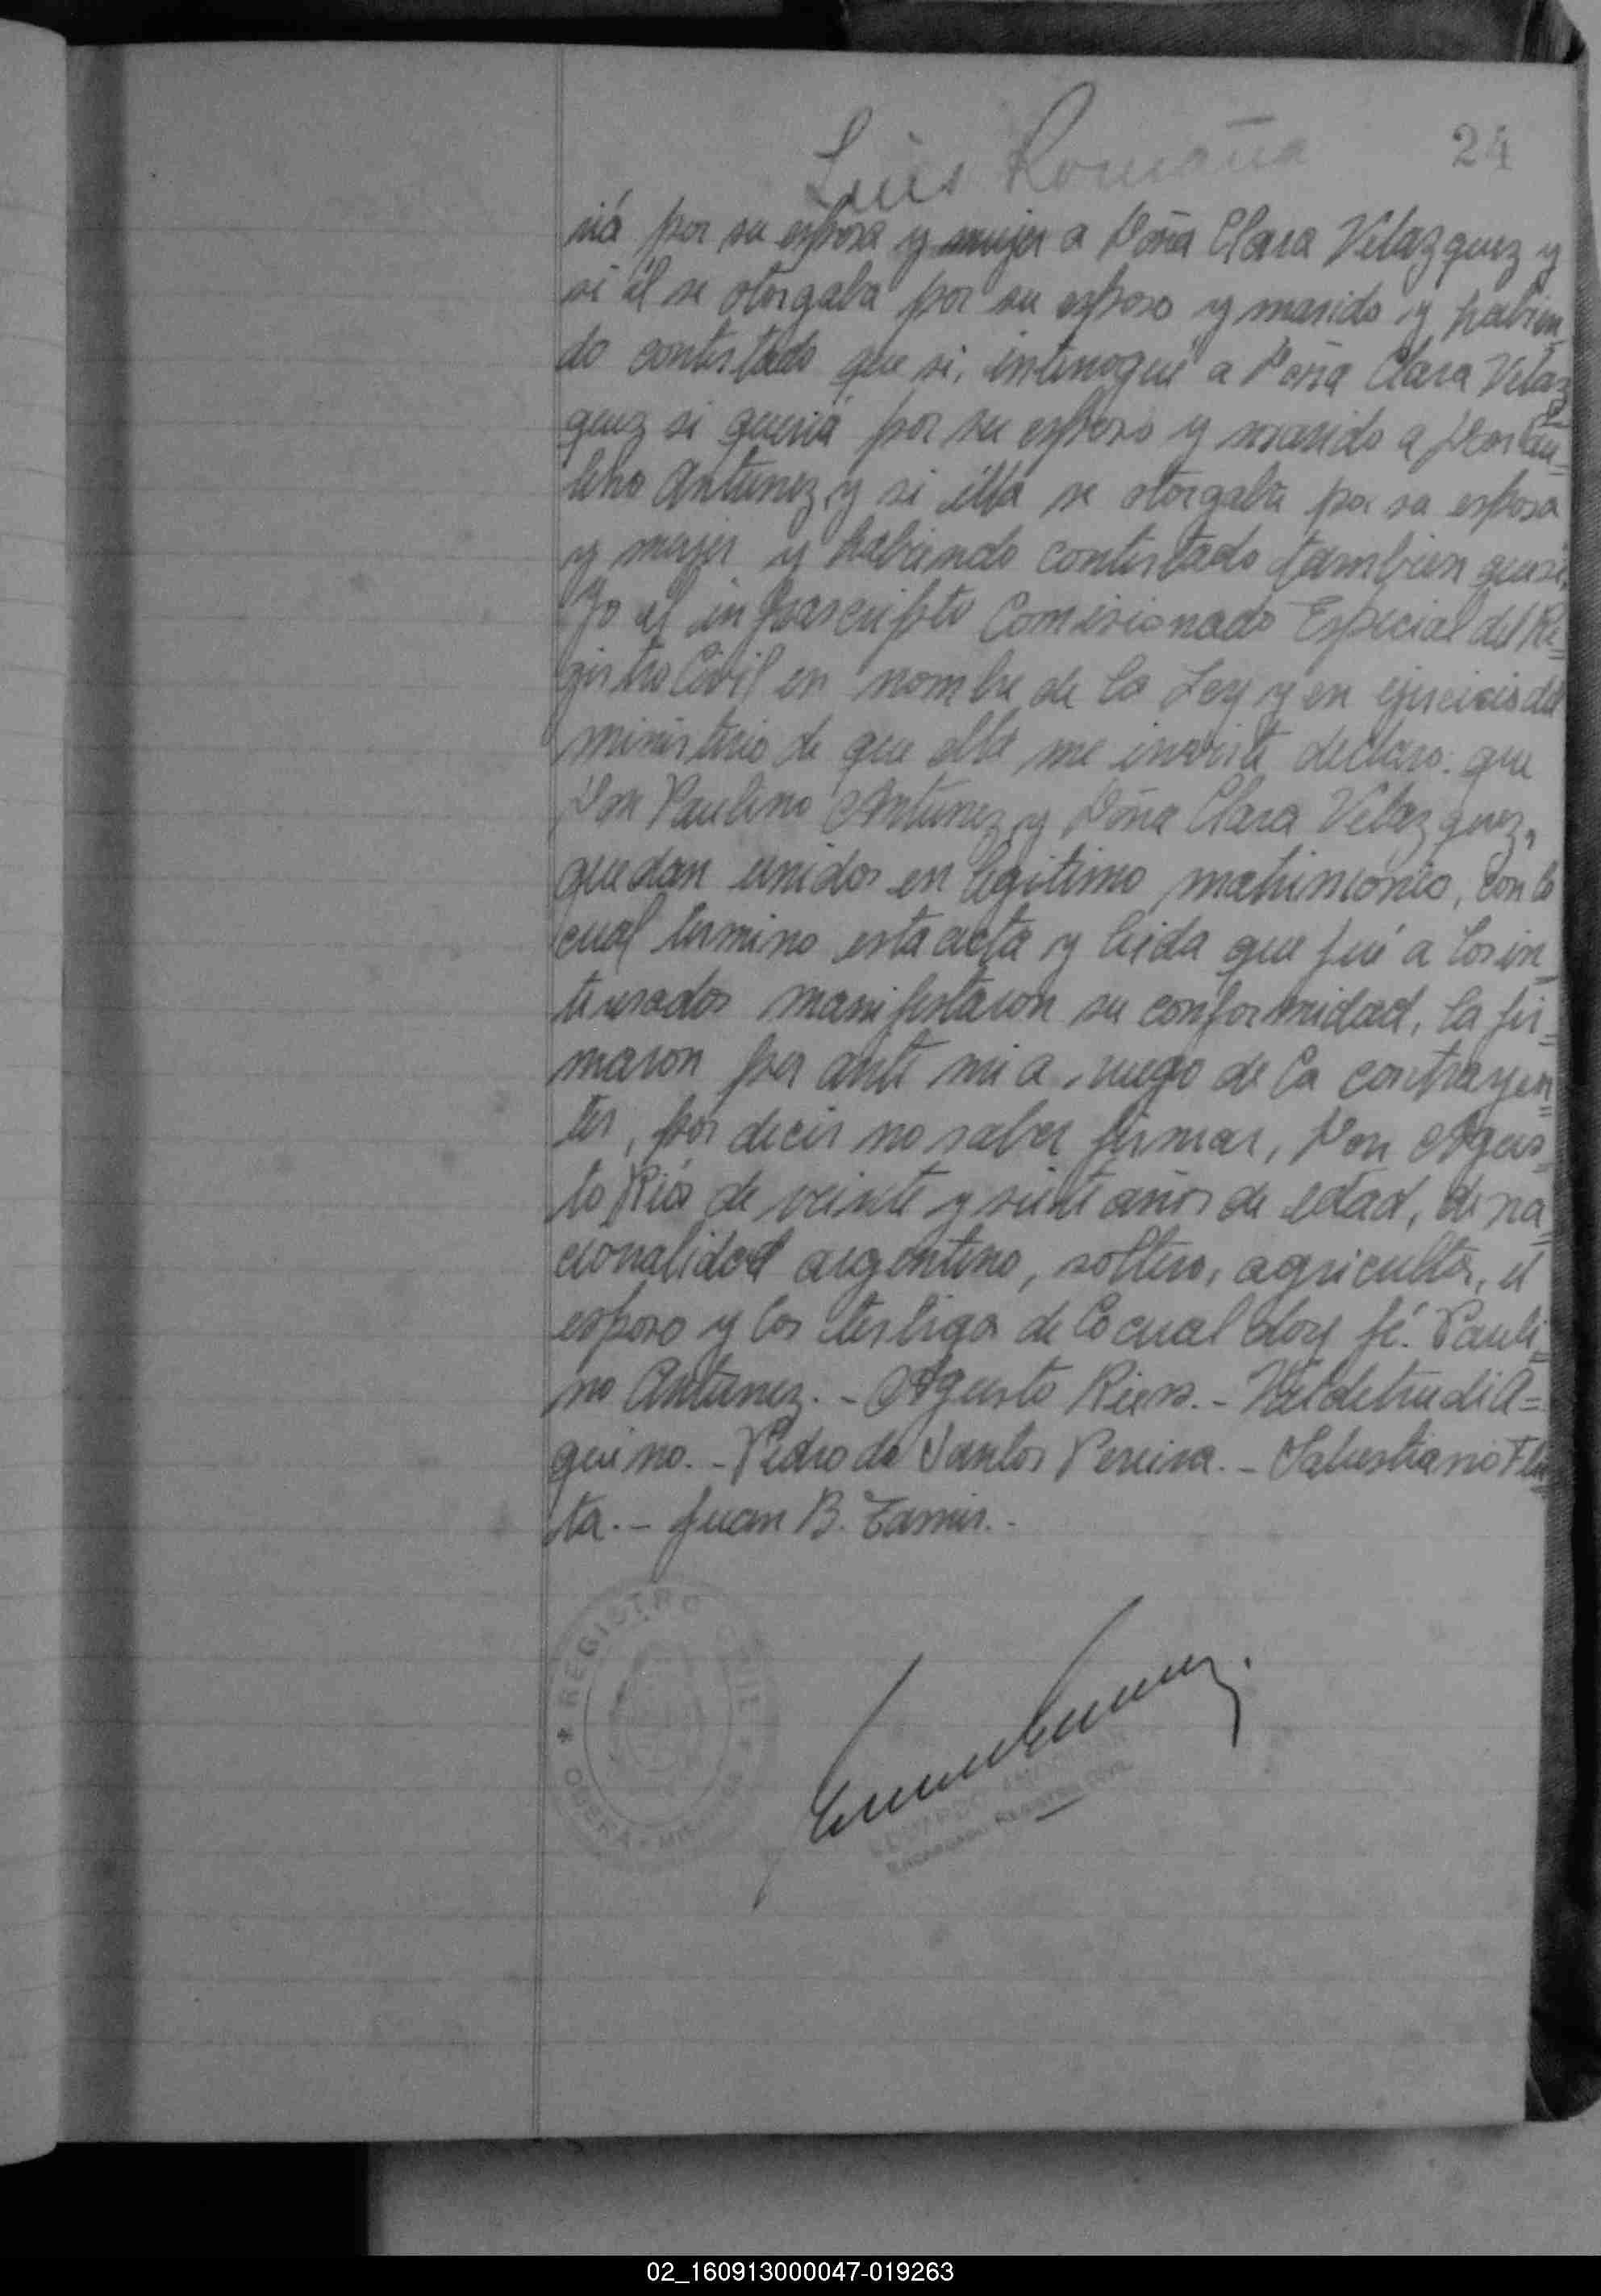 Luis Romaña
24
riá por su esposa y mujer a Doña Clara Velazquez y
si él se otorgaba por su esposo y marido y habien
do contestado que si, interrogué a Doña Clara Velaz
quez si queriá por su esposo y marido a Don Pau=
lino Antunez, y si élla se otorgaba por su esposa
y mujer y habiendo contestado tambien que si,
Yo el infrascripto Comisionado Especial del Re=
gistro Civil en nombre de la Ley y en ejercicio del
ministerio de que ella me inviste declaro: que
Don Paulino Antunez y Doña Clara Velazquez,
quedan unidos en legitimo matrimonio, con lo
cual termino esta acta y leida que fué a los in=
teresados manifestaron su conformidad, la fir=
maron por ante mi a ruego de la contrayen=
tes, por decir no saber firmar, Don Agus=
to Rios de veinte y siete años de edad, de na=
cionalidad argentino, soltero, agricultor, el
esposo y los testigos de lo cual doy fé. Pauli=
no Antunez. - Agusto Rios. - A=
quino. - Pedro do Santos Pereira. - Salustiano
ta. - Juan B.
REGISTRO CIVIL
OBERÁ - MISIONES
EDUARDO
ENCARGADO REGISTRO CIVIL
02_160913000047-019263